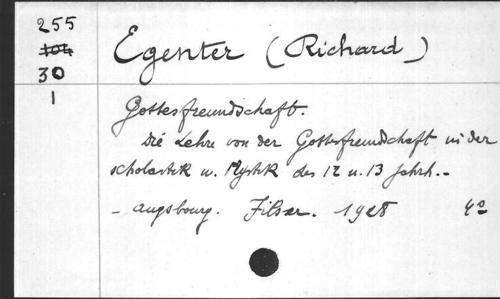 255
104
30
1
Egenter (Richard)
Gottesfreundschaft.
Die Lehre von der Gottesfreundschaft in der
scholastik u. Mystik des 12 u. 13 Jahrh. -
- Augsbourg. Filser. 1928 4º